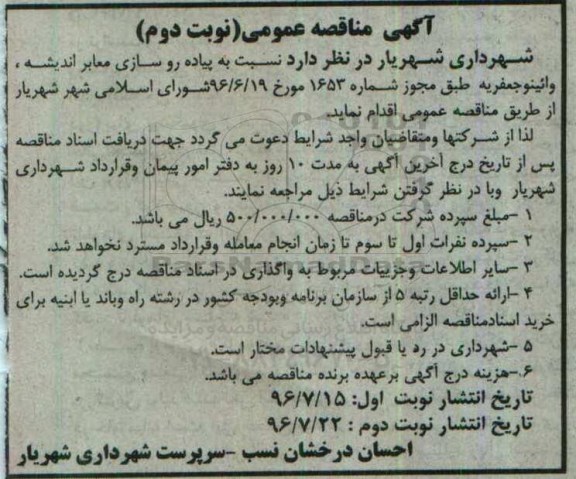 آگهی مناقصه عمومی(نوبت دوم)
شهرداری شهریار در نظر دارد نسبت به پیاده رو سازی معابر اندیشه ،
وائینوجعفریه طبق مجوز شماره ۱۶۵۳ مورخ ۹۶/۶/۱۹شورای اسلامی شهر شهریار
از طریق مناقصه عمومی اقدام نماید.
لذا از شرکتها ومتقاضیان واجد شرایط دعوت می گردد جهت دریافت اسناد مناقصه
پس از تاریخ درج آخرین آگهی به مدت ۱۰ روز به دفتر امور پیمان وقرارداد شهرداری
شهریار وبا در نظر گرفتن شرایط ذیل مراجعه نمایند.
۱ -مبلغ سپرده شرکت درمناقصه ۵۰۰/۰۰۰/۰۰۰ ریال می باشد.
۲ -سپرده نفرات اول تا سوم تا زمان انجام معامله وقرارداد مسترد نخواهد شد.
۳ -سایر اطلاعات وجزییات مربوط به واگذاری در اسناد مناقصه درج گردیده است.
۴ -ارائه حداقل رتبه ۵ از سازمان برنامه وبودجه کشور در رشته راه وباند یا ابنیه برای
خرید اسنادمناقصه الزامی است.
۵ -شهرداری در رد یا قبول پیشنهادات مختار است.
۶ -هزینه درج آگهی برعهده برنده مناقصه می باشد.
تاریخ انتشار نوبت اول: ۹۶/۷/۱۵
تاریخ انتشار نوبت دوم : ۹۶/۷/۲۲
احسان درخشان نسب -سرپرست شهرداری شهریار